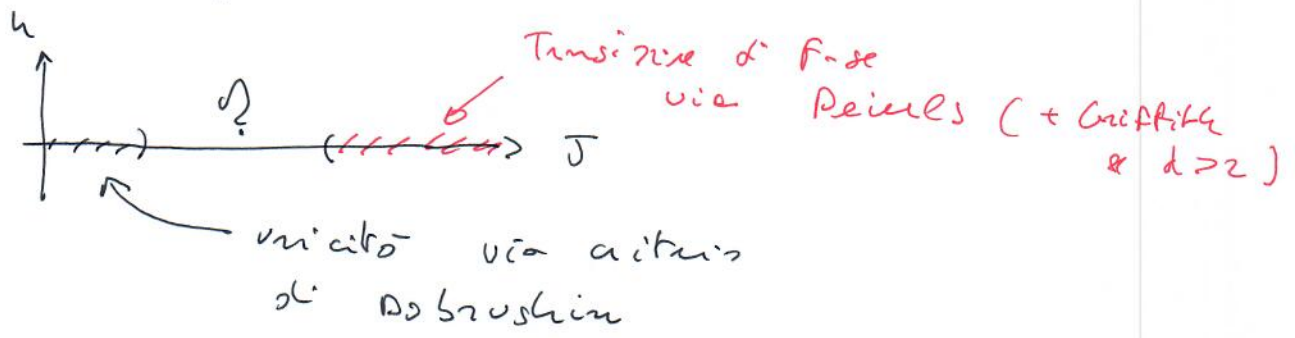 h
Transizione di fase
via Peierls (+ Griffith
?
& d>2)
J
unicità via criterio
di Dobrushin